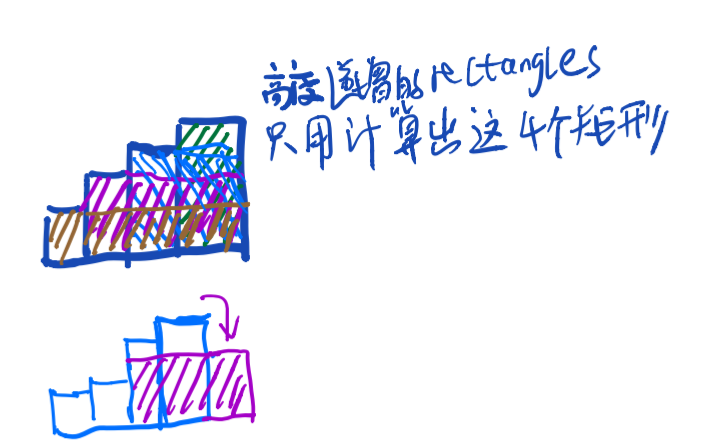 高度递增的rectangles
只用计算出这4个矩形